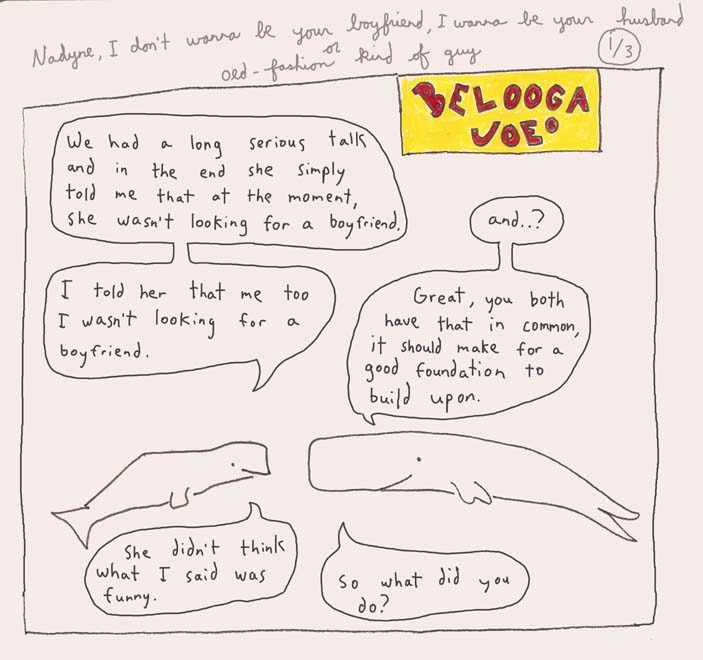 Nadyne, I don't wanna be your boyfriend, I wanna be your husband
or
old-fashion kind of guy
1/3
BELOOGA
JOE
We had a long serious talk
and in the end she simply
told me that at the moment,
she wasn't looking for a boyfriend.
and..?
I told her that me too
I wasn't looking for a
boyfriend.
Great, you both
have that in common,
it should make for a
good foundation to
build upon.
She didn't think
what I said was
funny.
So what did you
do?